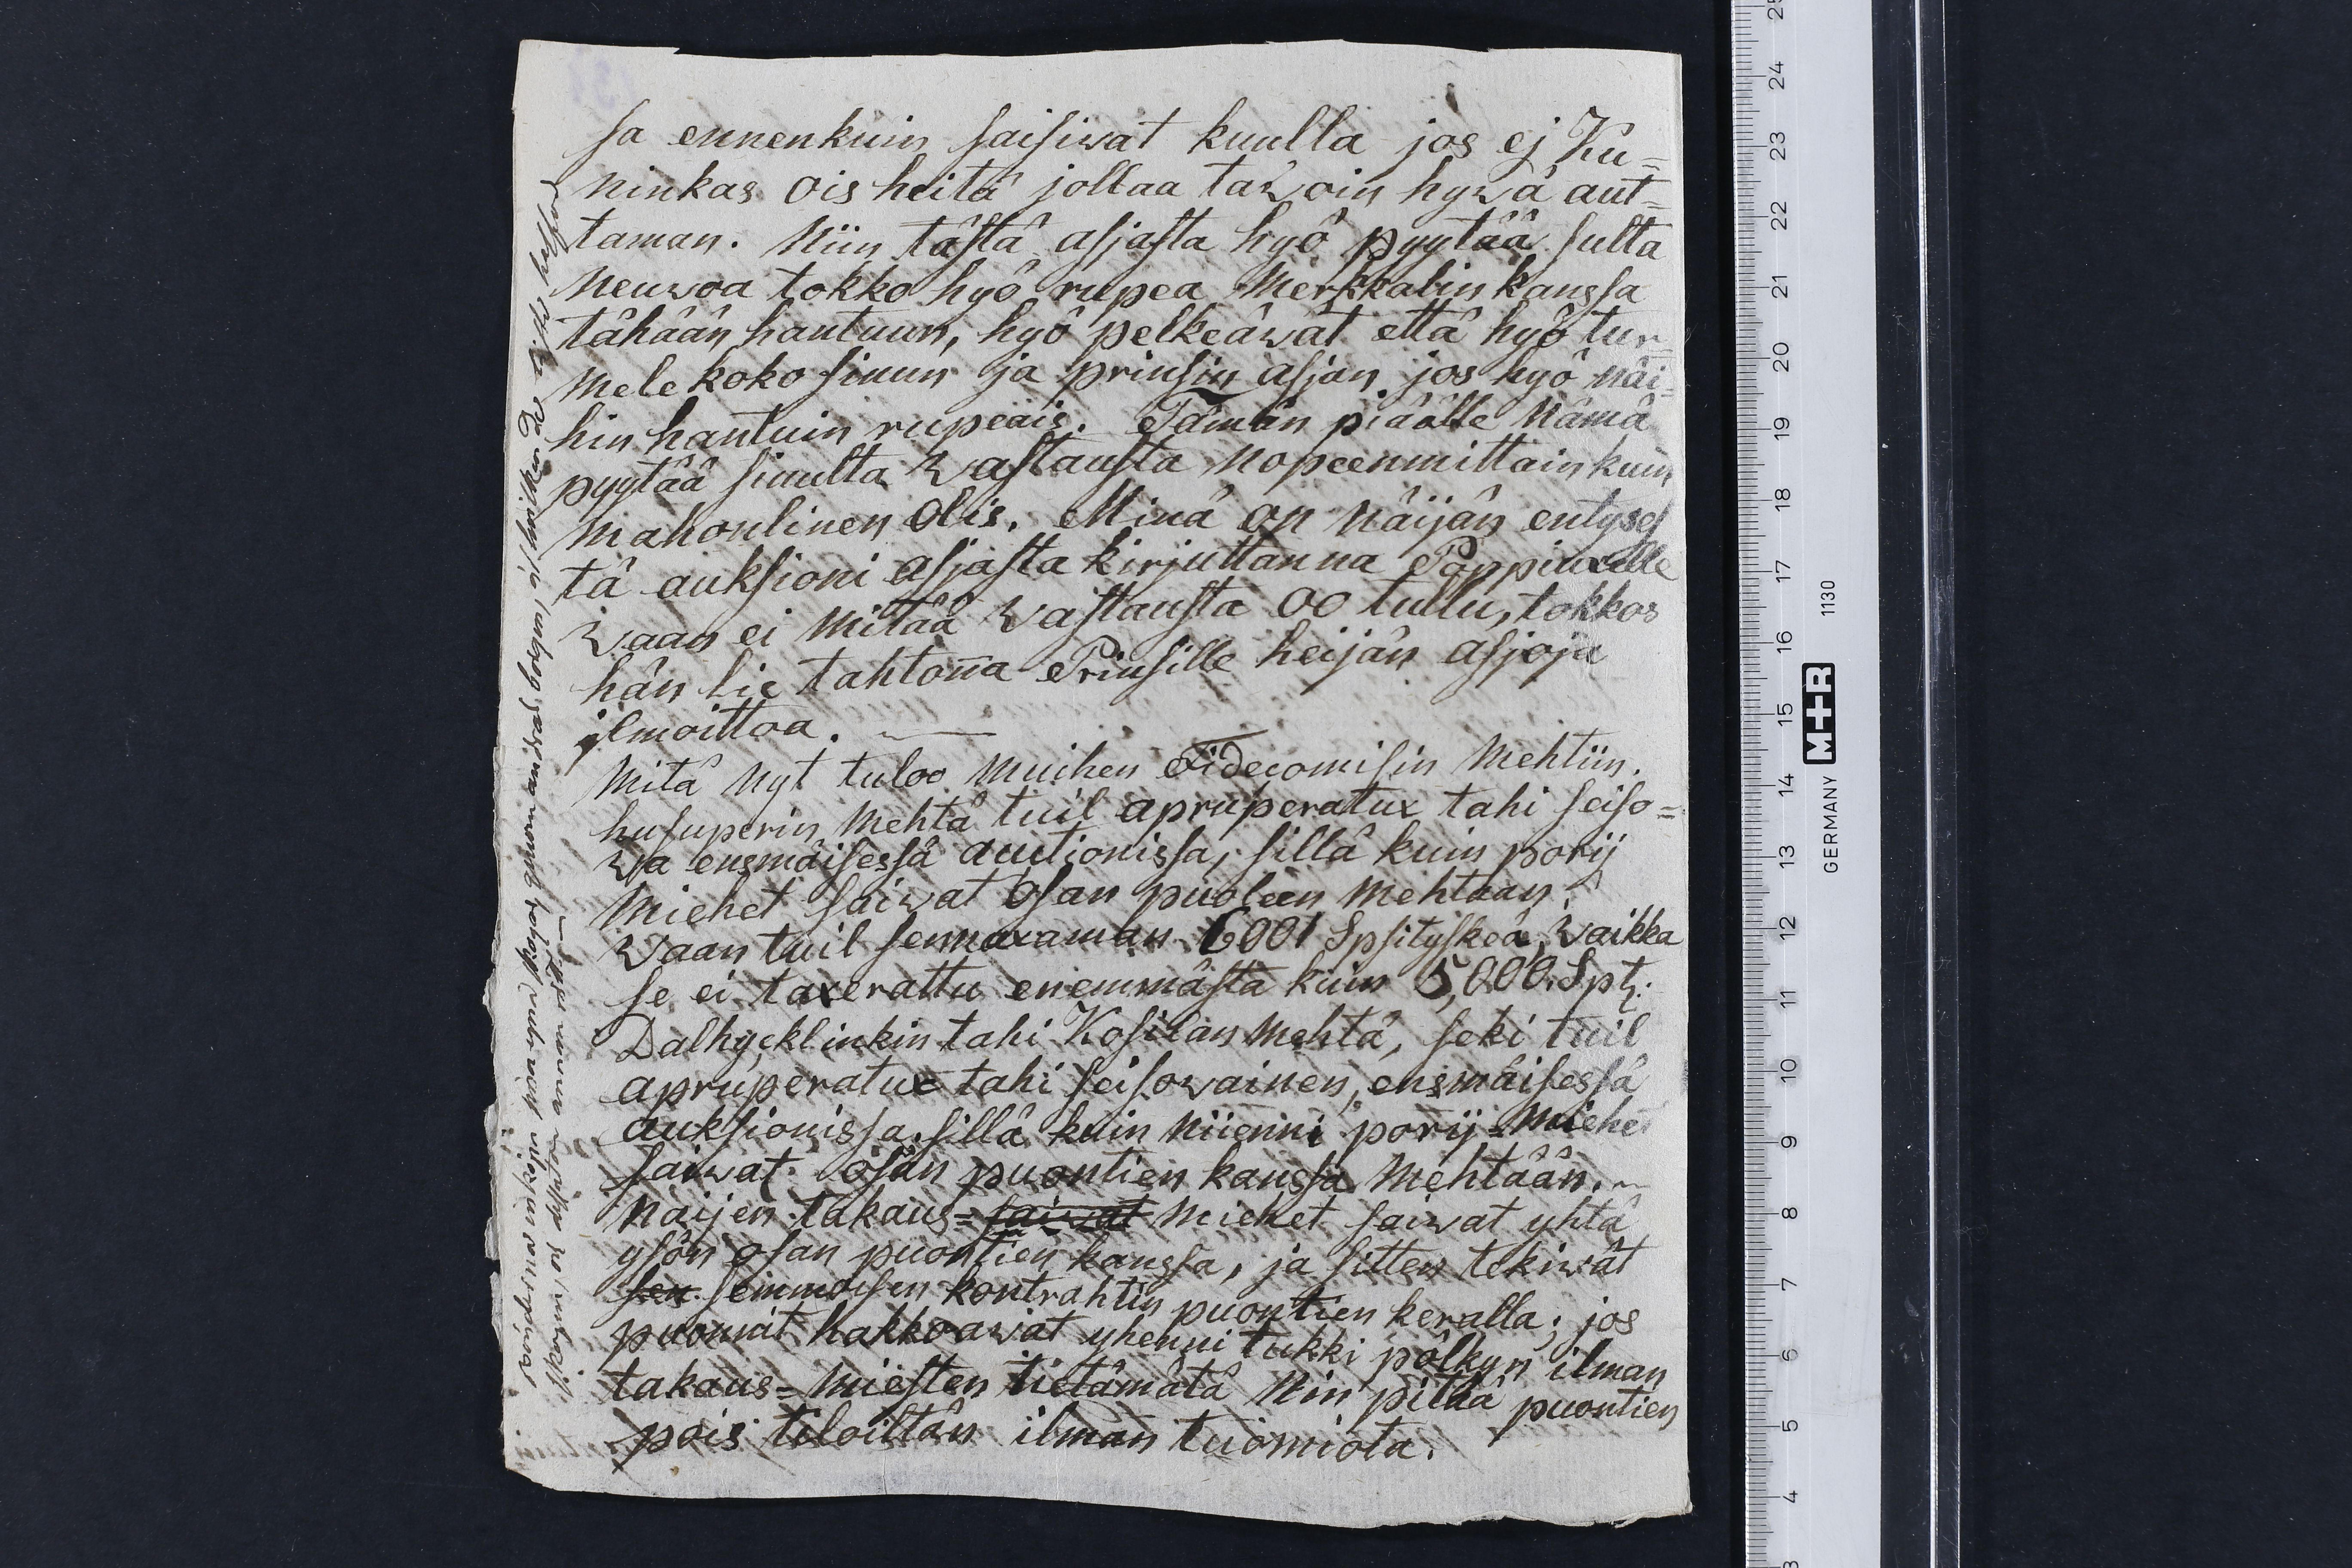 sa ennenkuin saisiwat kuulla jos ej Ku=
ninkas ois heitä jollaa tawoin hywä aut=
taman. Niin tästä asjasta hyö pyytää sulta
neuwoa tokko hyö rupea Merkkalin kanssa
tähään hantuun, hyö pelkeäwät että hyö tur=
mele koko sinun ja prinsin asjan jos hyö näi=
hin hantuin rupeais. Tämän piäälle nämä
pyytää sinulta wastausta nopeenmittain kuin
mahonlinen olis. Minä on näijän entyses
tä auksioni asjasta kirjuttanna Poppiuxelle
waan ei mitää wastausta oo tullu, tokkos
hän lie tahtona Prinsille heijän asjoja
ilmoittaa.
Mitä nyt tuloo muihen Fidecomisin mehtiin.
husuperin mehtä tuil apruperatux tahi seiso=
wa ensmäisessä auctionissa, sillä kuin porij
miehet saiwat osan puoleen mehtaan.
waan tuil sen maxaman 6001 Spsityskeä, waikka
se ei taxerattu enemmästä kuin 5,000 Sptz.
Dalhycklinkin tahi Kosilan mehtä, seki tuil
apruperatux tahi seisowainen, ensmäisessä
auksionissa, sillä kuin niienni porij=miehet
saiwat osan puontien kanssa mehtään.
Näijen takaus=saiwat miehet saiwat yhtä
ysön osan puontien kanssa, ja sitten tekiwät
sen semmoisen kontrahtin puontien keralla; jos
puonnat hakkoawat yhenni tukki pölkyn ilman
takaus=miesten tietämätä nin pitää puontien
pois tiloiltän ilman tuomiota.